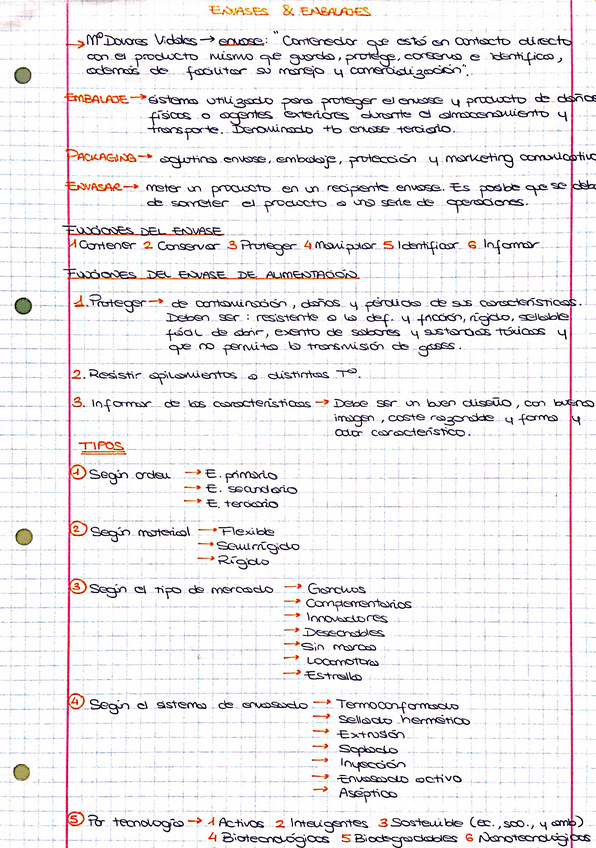 ENVASES & EMBALAJES
→ Mª Dolores Vidales → envase: "Contenedor que está en contacto directo
con el producto mismo que guarda, protege, conserva e identifica,
además de facilitar su manejo y comercialización".
EMBALAJE → sistema utilizado para proteger el envase y producto de daños
físicos o agentes exteriores durante el almacenamiento y
transporte. Denominado tb envase terciario.
PACKAGING → aglutina envase, embalaje, protección y marketing comunicativo
ENVASAR → meter un producto en un recipiente envase. Es posible que se deba
de someter el producto a una serie de operaciones.
FUNCIONES DEL ENVASE
1 Contener 2 Conservar 3 Proteger 4 Manipular 5 Identificar 6 Informar
FUNCIONES DEL ENVASE DE ALIMENTACIÓN
1. Proteger → de contaminación, daños y pérdida de sus características.
Deben ser: resistente a la def. y fricción, rígido, sellable
fácil de abrir, exento de sabores y sustancias tóxicas y
que no permita la transmisión de gases.
2. Resistir apilamientos a distintas Tº.
3. Informar de las características → Debe ser un buen diseño, con buena
imagen, coste razonable y forma y
color característico.
TIPOS
1 Según orden → E. primario
→ E. secundario
→ E. terciario
2 Según material → Flexible
→ Semirrígido
→ Rígido
3 Según el tipo de mercado → Ganchos
→ Complementarios
→ Innovadores
→ Desechables
→ Sin marca
→ Locomotora
→ Estrella
4 Según el sistema de envasado → Termoconformado
→ Sellado hermético
→ Extrusión
→ Soplado
→ Inyección
→ Envasado activo
→ Aséptico
5 Por tecnología → 1 Activos 2 Inteligentes 3 Sostenible (ec., soc., y amb)
4 Biotecnológicos 5 Biodegradables 6 Nanotecnológicos